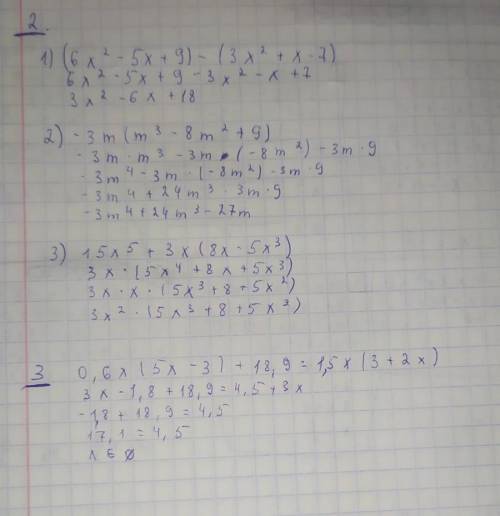 2.
1) (6x² - 5x + 9) - (3x² + x - 7)
6x² - 5x + 9 - 3x² - x + 7
3x² - 6x + 18
2) - 3m (m³ - 8m² + 9)
- 3m · m³ - 3m · (-8m²) - 3m · 9
- 3m⁴ - 3m · (-8m²) - 3m · 9
- 3m⁴ + 24m³ - 3m · 9
- 3m⁴ + 24m³ - 27m
3) 15x⁵ + 3x (8x - 5x³)
3x · (5x⁴ + 8x + 5x³)
3x · x · (5x³ + 8 + 5x²)
3x² · (5x³ + 8 + 5x²)
3 0,6x (5x - 3) + 18,9 = 1,5x (3 + 2x)
3x - 1,8 + 18,9 = 4,5 + 3x
-1,8 + 18,9 = 4,5
17,1 = 4,5
x ∈ ∅